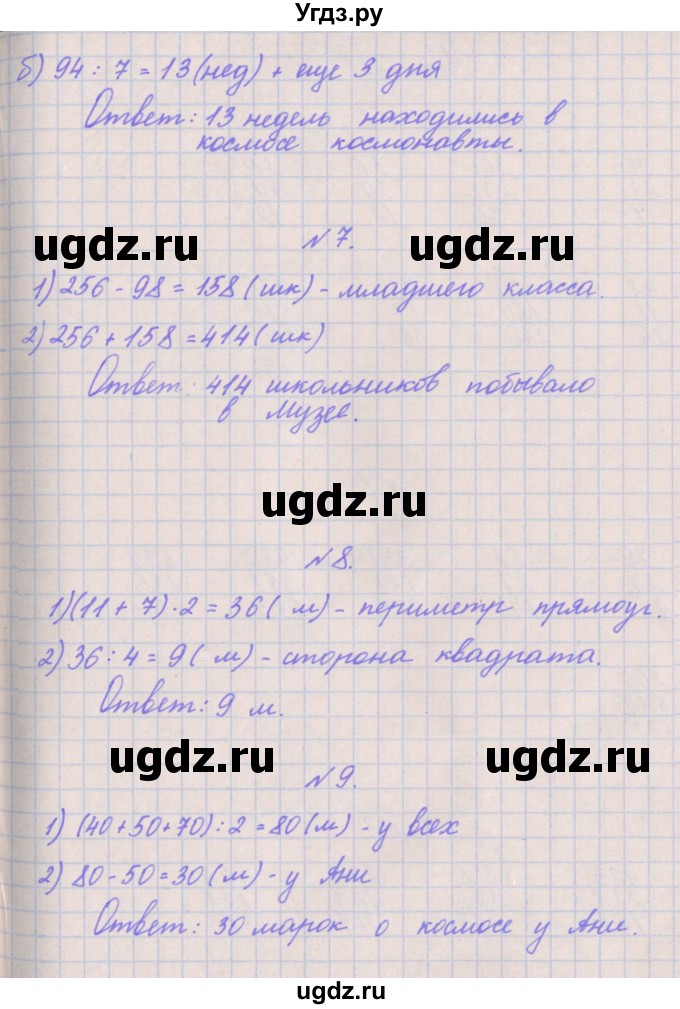 Угдз.ру
б) 94 : 7 = 13 (нед) + еще 3 дня
Ответ: 13 недель находились в
космосе космонавты.
ugdz.ru ugdz.ru
№ 7.
1) 256 - 98 = 158 (шк) - младшего класса.
2) 256 + 158 = 414 (шк)
Ответ: 414 школьников побывало
в музее.
ugdz.ru
№ 8.
1) (11 + 7) · 2 = 36 ( м) - периметр прямоуг.
2) 36 : 4 = 9 ( м) - сторона квадрата.
Ответ: 9 м.
ugdz.ru ugdz.ru
№ 9.
1) (40 + 50 + 70) : 2 = 80 (м) - у всех
2) 80 - 50 = 30 (м) - у Ани
Ответ: 30 марок о космосе у Ани.
ugdz.ru